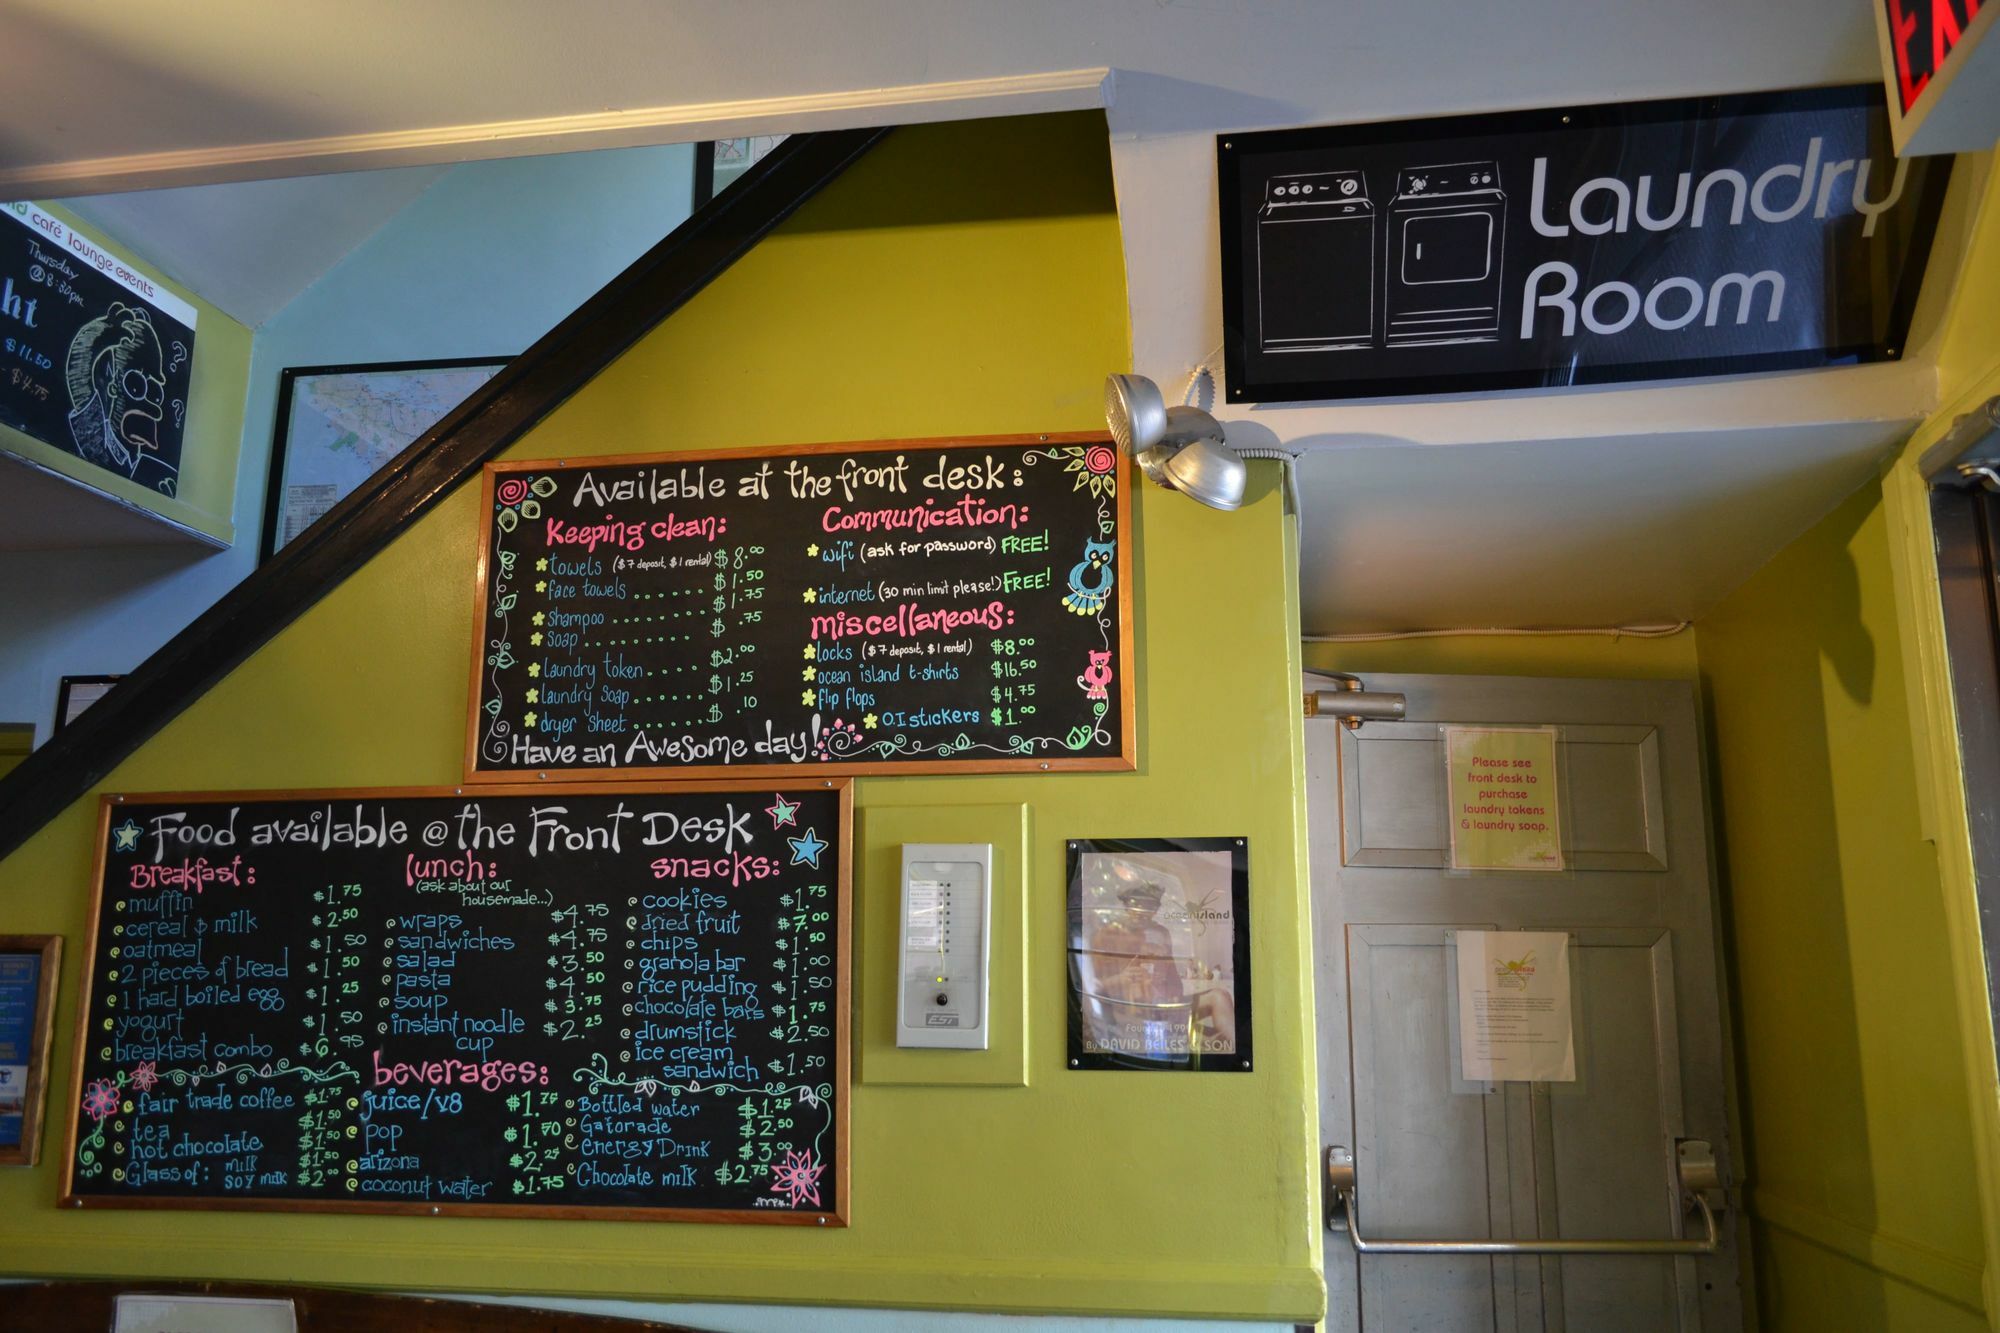 EX
Laundry
Room
café lounge events
Thursday
@ 8:30pm
ht
$11.50
- $4.75
? ?
Available at the front desk:
Keeping clean:
towels ($7 deposit, $1 rental) $8.00
face towels....... $1.50
shampoo........ $1.75
soap!....... $.75
laundry token..... $2.00
laundry soap...... $1.25
dryer sheet...... $.10
Communication:
wifi (ask for password) FREE!
internet (30 min limit please!) FREE!
miscellaneous:
locks ($7 deposit, $1 rental) $8.00
ocean island t-shirts $16.50
flip flops $4.75
O.I stickers $1.00
Have an Awesome day!
Food available @ the Front Desk
Breakfast:
muffin $1.75
cereal & milk $2.50
oatmeal $1.50
2 pieces of bread $1.50
1 hard boiled egg $1.25
yogurt $1.50
breakfast combo $6.95
lunch:
(ask about our
housemade...)
wraps $4.75
sandwiches $4.75
salad $3.50
pasta $4.50
soup $3.75
instant noodle
cup $2.25
snacks:
cookies $1.75
dried fruit $7.00
chips $1.50
granola bar $1.00
rice pudding $1.50
chocolate bars $1.75
drumstick $2.50
ice cream
sandwich $1.50
beverages:
fair trade coffee $1.75
tea $1.50
hot chocolate $1.50
Glass of: milk $1.50
soy milk $2.00
juice/v8 $1.75
pop $1.50
arizona $2.25
coconut water $1.75
Bottled water $1.25
Gatorade $2.50
energy Drink $3.00
Chocolate milk $2.75
EST
oceanisland
By DAVID BEILES & SON
Please see
front desk to
purchase
laundry tokens
& laundry soap.